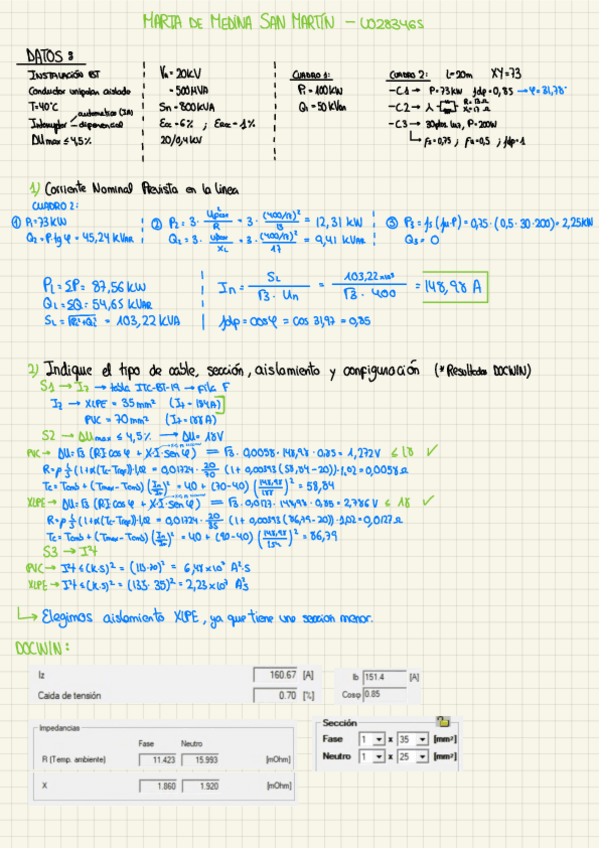 MARTA DE MEDINA SAN MARTÍN - UO283465
DATOS:
INSTALACIÓN BT
Conductor unipolar aislado
T=40°C
Interruptor automático (IA)
diferencial
ΔUmax ≤ 4,5%
Vn = 20KV
= 500MVA
Sn = 800KVA
Ecc = 6% ; = 1%
20/0,4 kV
CUADRO 1:
P1 = 100KW
Q1 = 50 KVar
CUADRO 2: L=20m XY=73
-C1 → P=73KW fdp=0,85 → φ=31,78°
-C2 → R=13Ω
X=17Ω
-C3 → 30 ptos luz, P=200W
↳ fs=0,75 ; fu=0,5 ; fdp=1
1) Corriente Nominal Prevista en la línea
CUADRO 2:
① P1=73KW
Q1 = P·tgφ = 45,24 KVAR
② P2 = 3 · / R = 3 · (400/√3)² / 13 = 12,31 KW
Q2 = 3 · / XL = 3 · (400/√3)² / 17 = 9,41 KVAR
③ P3 = fs (fu·P) = 0,75 · (0,5·30·200) = 2,25KW
Q3 = 0
PL = ΣP = 87,56 KW
QL = ΣQ = 54,65 KVAR
SL = √PL²+QL² = 103,22 KVA
In = SL / √3 · Un = 103,22 x10³ / √3 · 400 = 148,98 A
fdp = cosφ = cos 31,97 = 0,85
2) Indique el tipo de cable, sección, aislamiento y configuración (*Resultados DOCWIN)
S1 → Iz → tabla ITC-BT-19 → Fila F
Iz → XLPE = 35mm² (Iz = 154A)
PVC = 70mm² (Iz = 188A)
S2 → ΔUmax ≤ 4,5% → ΔU = 18V
PVC → ΔU = √3 (R·I·cosφ + X·I·senφ) = √3 · 0,0058 · 148,98 · 0,85 = 1,272V ≤ 18 ✓
R = ρ (1+α(Tc-T))·1,02 = 0,01724 · 20/70 (1+0,00393 (58,84-20))·1,02 = 0,0058 Ω
Tc = Tamb + (Tmax - Tamb) (In/Iz)² = 40 + (70-40) (148,98/188)² = 58,84
XLPE → ΔU = √3 (R·I·cosφ + X·I·senφ) = √3 · 0,0127 · 148,98 · 0,85 = 2,786 V ≤ 18 ✓
R = ρ (1+α(Tc-T))·1,02 = 0,01724 · 20/35 (1+0,00393 (86,79-20)) · 1,02 = 0,0127 Ω
Tc = Tamb + (Tmax - Tamb) (In/Iz)² = 40 + (90-40) (148,98/154)² = 86,79
S3 → I²t
PVC → I²t ≤ (K·S)² = (115·70)² = 6,48 x10⁷ A²·s
XLPE → I²t ≤ (K·S)² = (135·35)² = 2,23 x10⁷ A²s
↳ Elegimos aislamiento XLPE, ya que tiene una sección menor.
DOCWIN:
Iz 160.67 [A]
Caída de tensión 0.70 [%]
Ib 151.4 [A]
Cosφ 0.85
Impedancias
Fase Neutro
R (Temp. ambiente) 11.423 15.993 [mOhm]
X 1.860 1.920 [mOhm]
Sección
Fase 1 x 35 [mm²]
Neutro 1 x 25 [mm²]